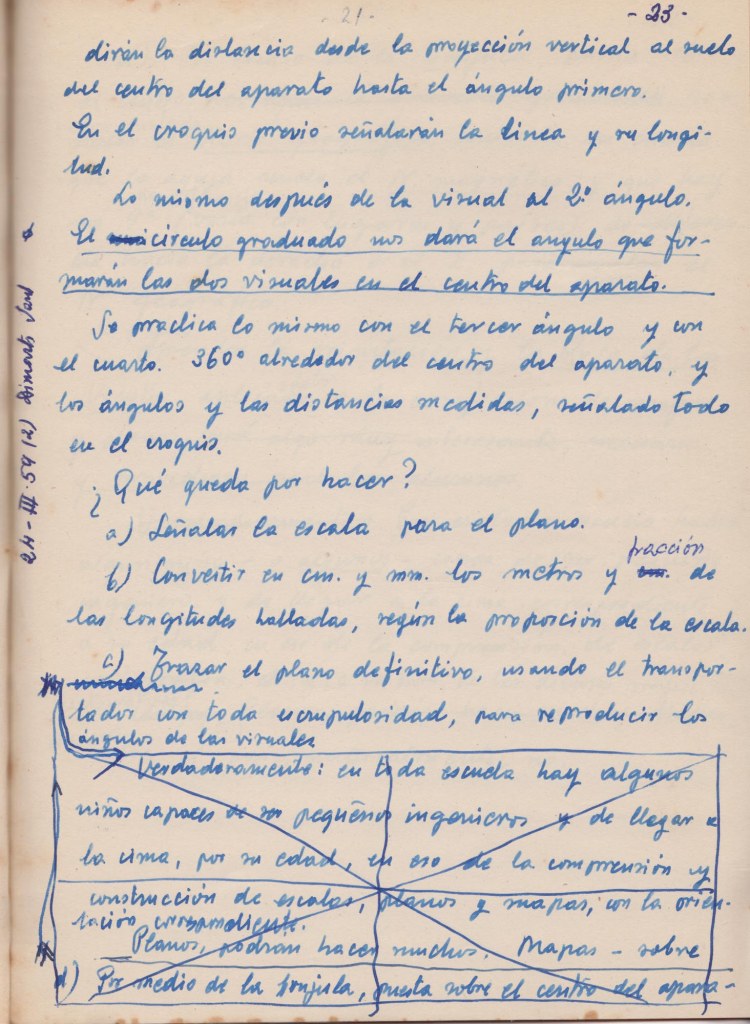 - 21 -
- 23 -
dirán la distancia desde la proyección vertical al suelo
del centro del aparato hasta el ángulo primero.
En el croquis previo señalarán la línea y su longi-
tud.
Lo mismo después de la visual al 2º ángulo.
El circulo graduado nos dará el angulo que for-
marán las dos visuales en el centro del aparato.
Se practica lo mismo con el tercer ángulo y con
el cuarto. 360º alrededor del centro del aparato, y
los ángulos y las distancias medidas, señalado todo
en el croquis.
¿Qué queda por hacer?
a) Señalar la escala para el plano.
fracción
b) Convertir en cm. y mm. los metros y cm. de
las longitudes halladas, según la proporción de la escala.
c) Trazar el plano definitivo, usando el transpor-
tador con toda escrupulosidad, para reproducir los
ángulos de las visuales
Verdaderamente: en toda escuela hay algunos
niños capaces de ser pequeños ingenieros y de llegar a
la cima, por su edad, en eso de la comprensión y
construcción de escalas, planos y mapas, con la orien-
tación correspondiente.
Planos, podrán hacer muchos. Mapas - sobre
d) Por medio de la brújula, puesta sobre el centro del apara-
24-III-59 (2)